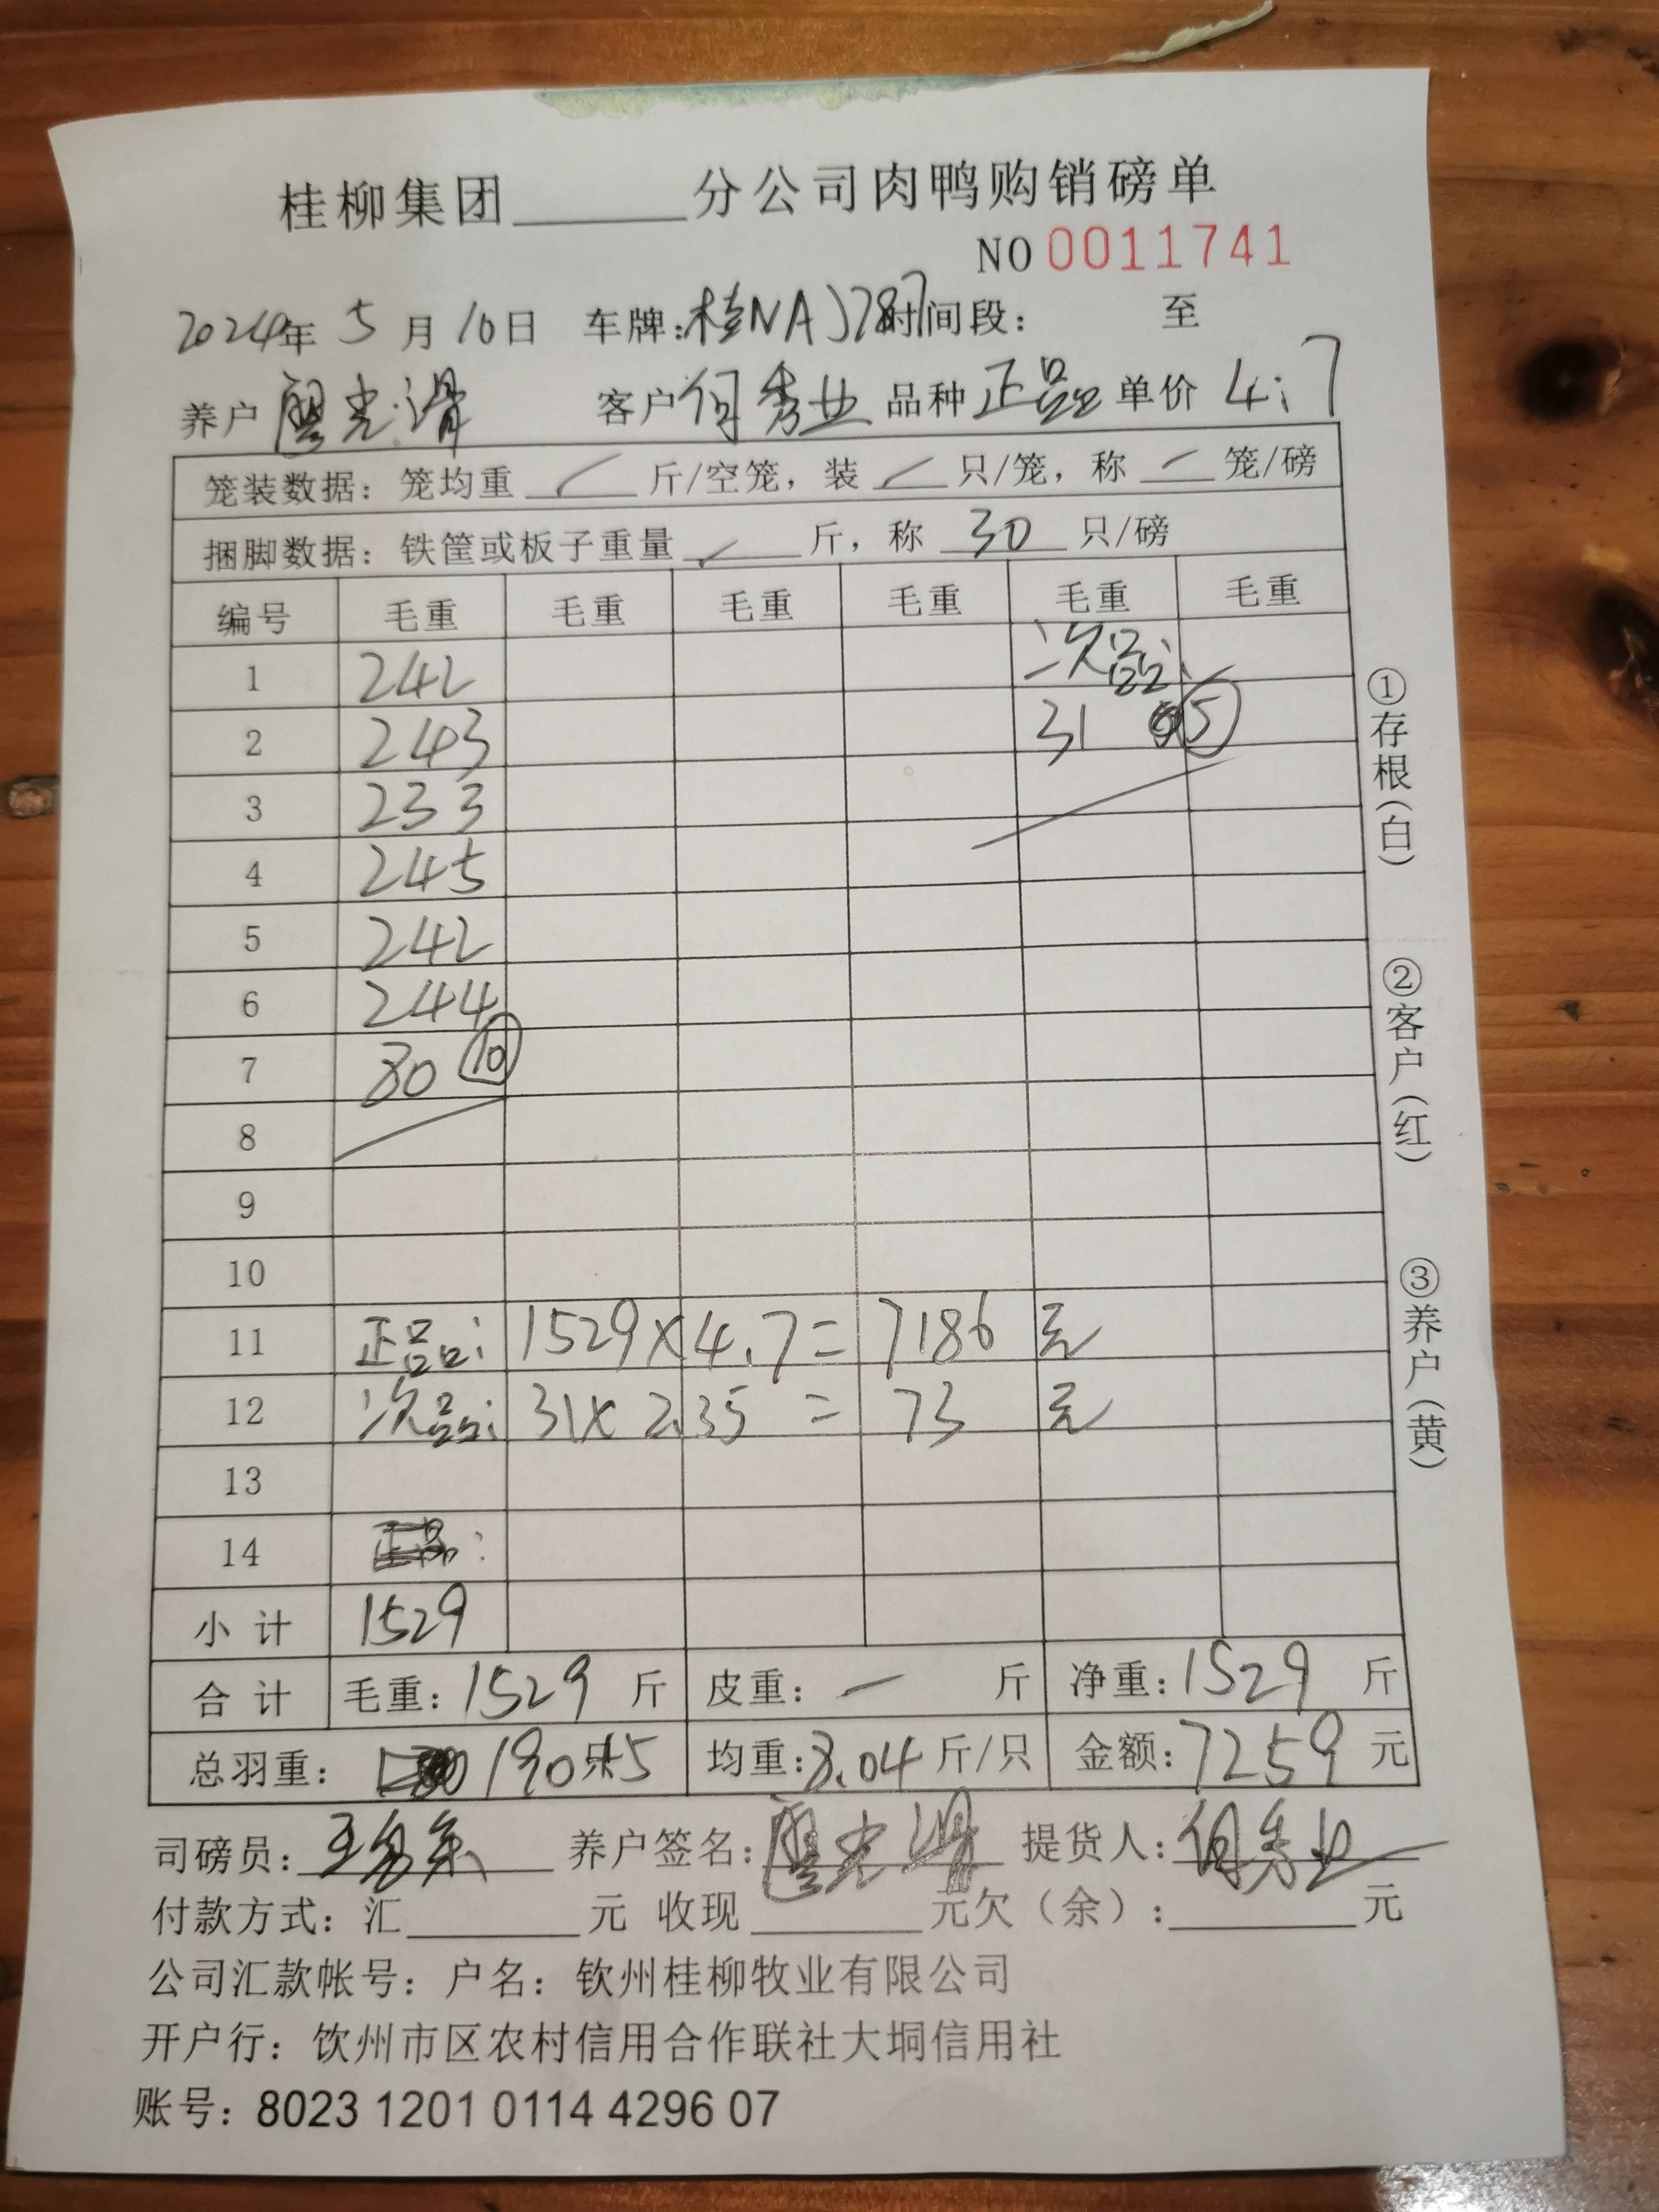 桂柳集团______分公司肉鸭购销磅单
NO 0011741
2024年 5 月 10日 车牌:桂NAJ787 时间段: 至
养户 廖光滑 客户 何秀业 品种 正品 单价 4.7
笼装数据: 笼均重 / 斤/空笼, 装 / 只/笼, 称 / 笼/磅
捆脚数据: 铁筐或板子重量 / 斤, 称 30 只/磅
编号 毛重 毛重 毛重 毛重 毛重 毛重
1 242 次品:
2 243 31 5
3 233
4 245
5 242
6 244
7 80 10
8
9
10
11 正品: 1529×4.7= 7186 元
12 次品: 31×2.35 = 73 元
13
14
小 计 1529
合 计 毛重: 1529 斤 皮重: — 斤 净重: 1529 斤
总羽重: 190只+5 均重: 8.04 斤/只 金额: 7259 元
司磅员: 养户签名: 廖光滑 提货人: 何秀业
付款方式: 汇______元 收现______元欠(余):______元
公司汇款帐号: 户名: 钦州桂柳牧业有限公司
开户行: 钦州市区农村信用合作联社大垌信用社
账号: 8023 1201 0114 4296 07
①存根(白)
②客户(红)
③养户(黄)